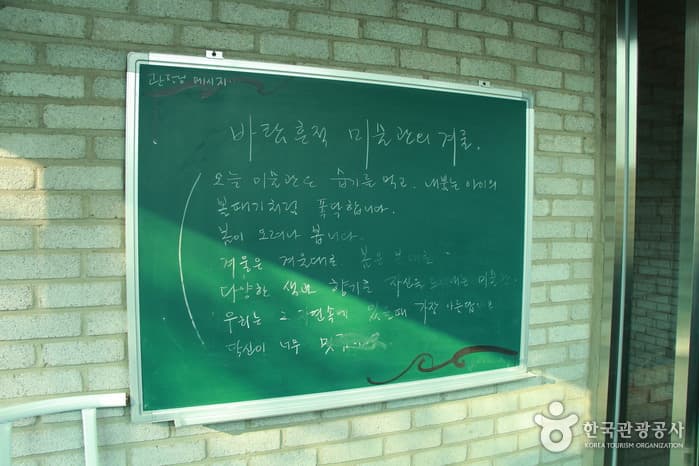 관장님 메시지.
바람흔적 미술관의 겨울.
오늘 미술관은 습기를 먹고. 내뿜는 아이의
볼때기처럼 폭닥합니다.
봄이 오려나 봅니다.
겨울은 겨울대로 봄은 봄대로
다양한 색과 향기로 자신을 미술관.
우리는 그 자연속에 있을때 가장 아름답
당신이 너무
한국관광공사
KOREA TOURISM ORGANIZATION